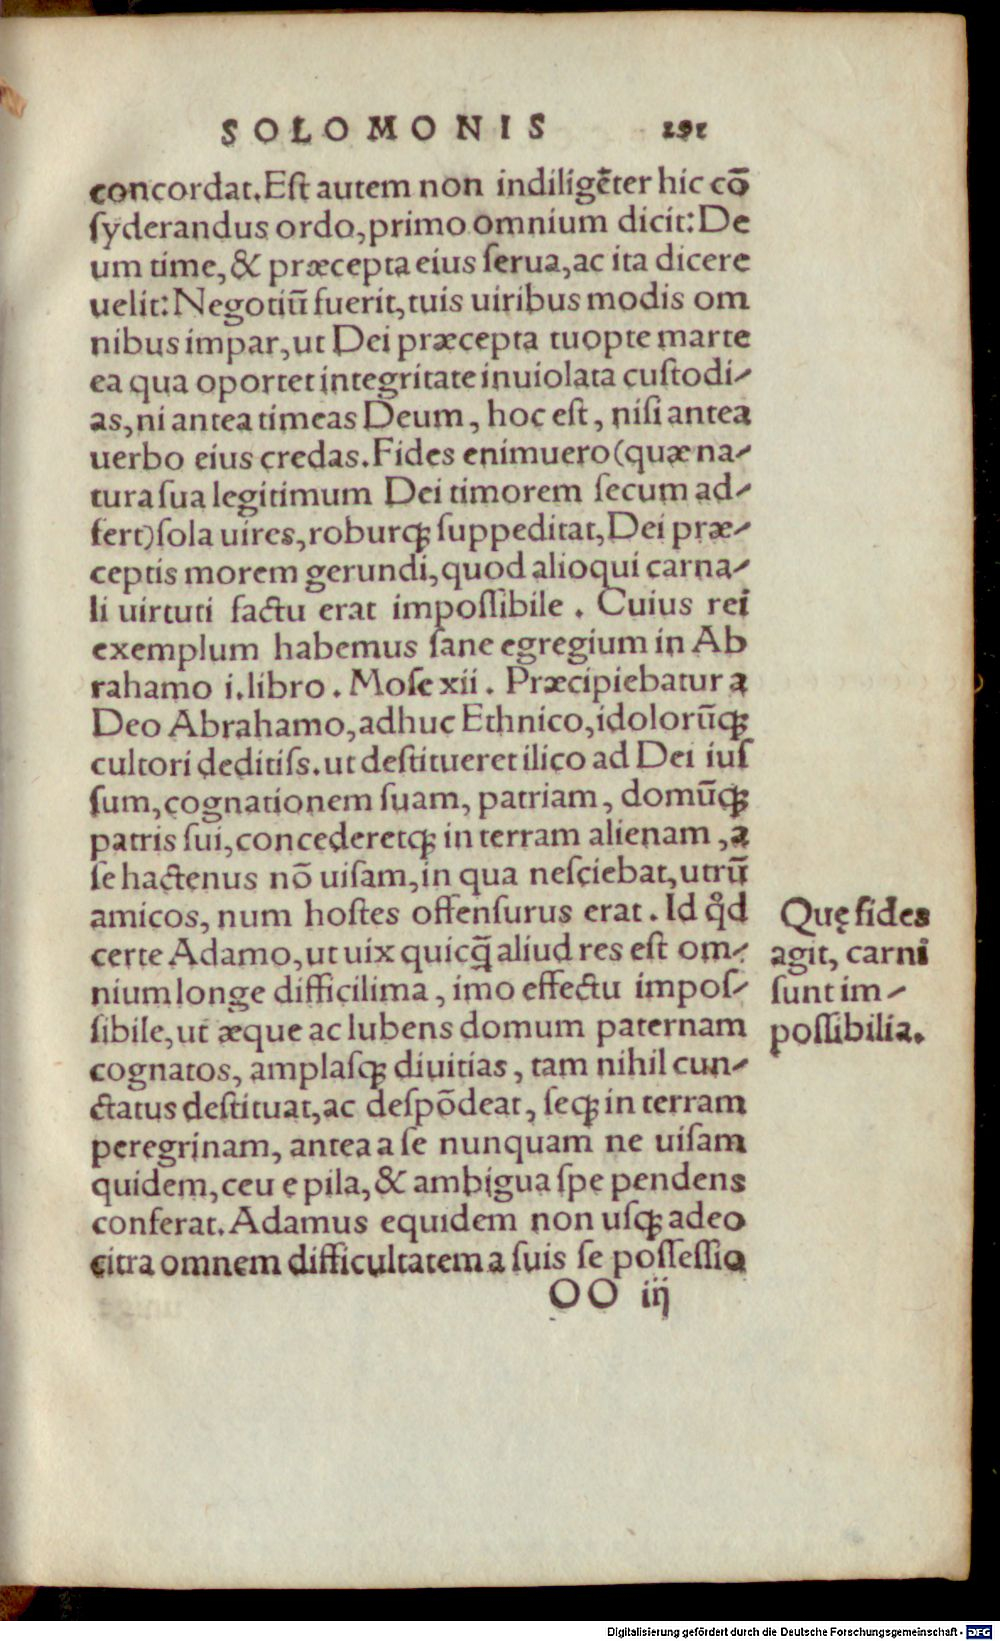 SOLOMONIS 291
concordat. Eſt autem non indiligẽter hic cõ
ſyderandus ordo, primo omnium dicit: De
um time, & præcepta eius ſerua, ac ita dicere
uelit: Negotiũ fuerit, tuis uiribus modis om
nibus impar, ut Dei præcepta tuopte marte
ea qua oportet integritate inuiolata cuſtodi-
as, ni antea timeas Deum, hoc eſt, niſi antea
uerbo eius credas. Fides enimuero (quæ na-
tura ſua legitimum Dei timorem ſecum ad-
fert) ſola uires, roburqꝫ ſuppeditat, Dei præ-
ceptis morem gerundi, quod alioqui carna-
li uirtuti factu erat impoſſibile. Cuius rei
exemplum habemus ſane egregium in Ab
rahamo i. libro. Moſe xii. Præcipiebatur a
Deo Abrahamo, adhuc Ethnico, idolorũqꝫ
cultori deditiſs. ut deſtitueret ilico ad Dei iuſ
ſum, cognationem ſuam, patriam, domũqꝫ
patris ſui, concederetqꝫ in terram alienam, a
ſe hactenus nõ uiſam, in qua neſciebat, utrũ
amicos, num hoſtes offenſurus erat. Id qd̉
certe Adamo, ut uix quicq̃ aliud res eſt om-
nium longe difficilima, imo effectu impoſ-
ſibile, ut æque ac lubens domum paternam
cognatos, amplaſqꝫ diuitias, tam nihil cun-
ctatus deſtituat, ac deſpõdeat, ſeqꝫ in terram
peregrinam, antea a ſe nunquam ne uiſam
quidem, ceu e pila, & ambigua ſpe pendens
conferat. Adamus equidem non uſqꝫ adeo
citra omnem difficultatem a ſuis ſe poſſeſſio
OO iij
Quę fides
agit, carni
ſunt im-
poſſibilia.
Digitalisierung gefördert durch die Deutsche Forschungsgemeinschaft - DFG